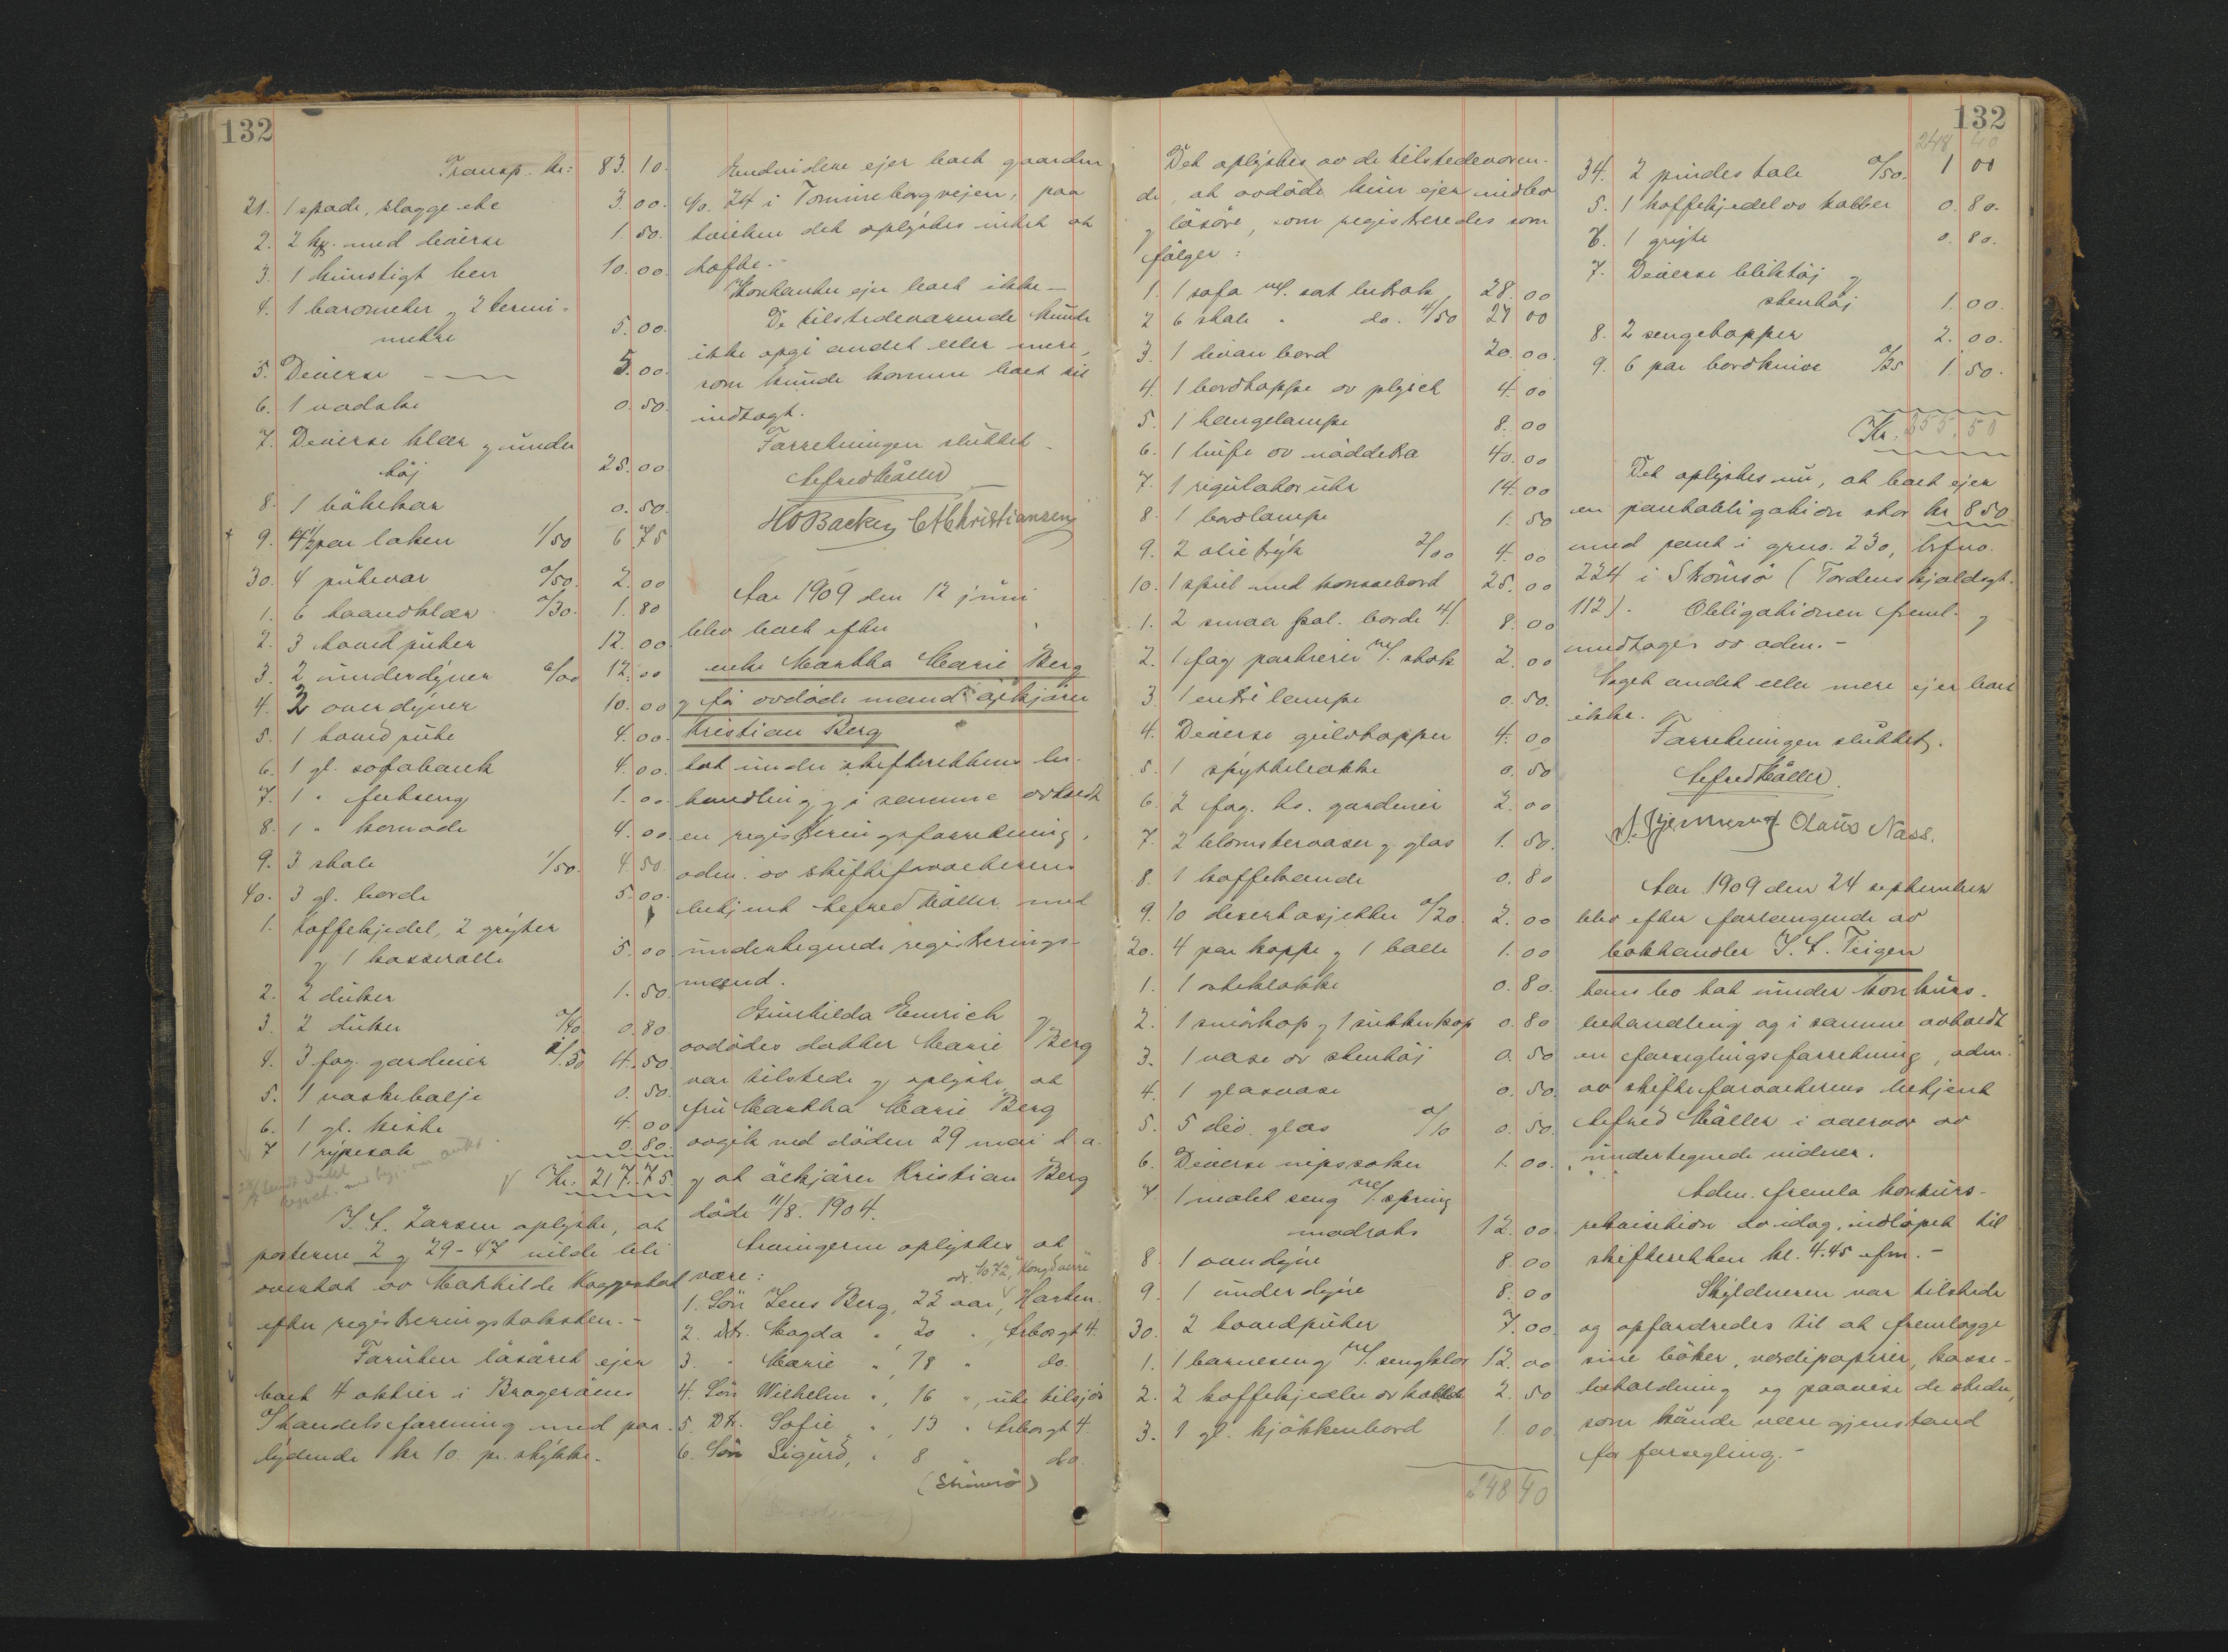 132
Transp. kr: 83.10.
21. 1 spade, slagge etc 3.00.
2. 2 kg. med diverse 1.50.
3. 1 kunstigt ben 10.00.
4. 1 barometer og 2 termo-
metre 5.00.
5. Diverse 5.00.
6. 1 vadske 0.50.
7. Diverse klær og under
töj 25.00.
8. 1 bökekar 0.50.
9. 4 1/2 par laken 1/50 6.75
30. 4 putevar 0/50. 2.00
1. 6 haandklær 0/30. 1.80
2. 3 hoved puter 12.00
3. 2 underdyner 6/00 12.00
4. 2 overdyner 10.00
5. 1 hoved pute 4.00.
6. 1 gl. sofabænk 4.00.
7. 1 " feltseng 1.00
8. 1 " komode 4.00.
9. 3 stole 1/50. 4.50.
40. 3 gl. borde 5.00.
1. kaffekjedel, 2 gryter
og 1 kasserolle 5.00
2. 2 duker 1.50.
3. 2 duker 0/40 0.80.
4. 3 fag. gardiner 1/50 4.50
5. 1 vaskebalje 0.50.
6. 1 gl. kiste 4.00
7 1 rypesak 0.80.
Kr. 217.75.
J. L. Larsen oplyste, at
posterne 2 og 29-47 vilde bli
overtat av Mathilde
efter registreringstaksten. -
Foruten lösöret ejer
boet 4 aktier i Brageröens
Ihandelsforening med paa-
lydende kr 10. pr. stykke.
Endvidere ejer boet gaarden
No. 24 i Tomineborgvejen, paa
hvilken det oplystes intet at
hefte. -
Kontanter ejer boet ikke -
De tilstedeværende kunde
ikke opgi andet eller mere,
som kunde komme boet til
indtægt.
Forretningen sluttet -
Alfred Möller
HO Backer CAChristiansen
Aar 1909 den 12 juni
blev boet efter
enke Martha Marie Berg
og för avdöde mand
Kristian Berg
tat under skifterettens be-
handling og i samme avholdt
en registreringsforretning,
adm. av skifteforvalterens
betjent Alfred Möller med
undertegnede registrerings-
mænd.
Gunhilda Emrich
avdödes datter Marie Berg
var tilstede og oplyste at
fru Martha Marie Berg
avgik ved döden 29 mai d. a.
og at Kristian Berg
döde 11/8. 1904.
Arvingerne oplystes at
være:
1. Sön Jens Berg, 22 aar,
2. Dtr. Magda ", 20 ", Arbosgt 4.
3. " Marie ", 18 " do.
4. Sön Wilhelm ", 16 ", ute tilsjös
5. Dtr. Sofie ", 13 " Arbosgt 4.
6. Sön Sigurd, " 8 " do.
(Strömsö)
132
Det oplystes av de tilstedeværen-
de, at avdöde kun ejer indbo
og lösöre, som registreredes som
fölger:
1. 1 sofa m/. sat betræk, 28.00
2 6 stole " do. 4/50 27 00
3. 1 divan bord 20.00.
4. 1 bordteppe av plysch 4.00
5. 1 hængelampe 8.00
6. 1 buffe av nöddetræ 40.00
7. 1 regulator uhr 14.00
8. 1 bordlampe 1.50
9. 2 olietryk 2/00 4.00
10. 1 speil med konsolbord 25.00
1. 2 smaa pol. borde 4/. 8.00
2. 1 fag portierer m/. stok 2.00
3 1 entré lampe 0.50.
4. Diverse gulvtepper 4.00
5. 1 spyttebakke 0.50
6. 2 fag. hv. gardiner 2.00
7. 2 blomstervaser og glas 1.50.
8. 1 kaffekande 0.80
9. 10 desertasjetter 0/20. 2.00
20. 4 par kopper og 1 bolle 1.00
1. 1 osteklokke 0.80.
2. 1 smörkop og 1 sukkerkop 0.80
3. 1 vase av stentöj 0.50
4. 1 glasvase 0.50.
5. 5 div. glas 0/10 0.50.
6. Diverse nipssaker 1.00.
7 1 malet seng m/. spring
madrats 12.00.
8. 1 overdyne 8.00
9. 1 underdyne 8.00
30. 2 hovedputer 7.00.
1. 1 barneseng m/. sengklær 12.00
2. 2 kaffekjedler av kobber 2.50
3. 1 gl. kjökkenbord 1.00
248 40
248 40
34. 2 pindestole 0/50. 1 00
5. 1 kaffekjedel av kobber 0.80.
6. 1 gryte 0.80.
7. Diverse bliktöj og
stentöj 1.00.
8. 2 sengetepper 2.00.
9. 6 par bordknive 0/25 1.50.
Kr. 255.50
Det oplystes nu, at boet ejer
en pantobligation stor kr 850
med pant i grno. 230, brfno.
224 i Strömsö (Tordenskjoldsgt.
112). Obligationen freml. og
mottages av adm. -
Noget andet eller mere ejer boet
ikke.
Forretningen sluttet.
Alfred Möller.
Olaus Næss.
Aar 1909 den 24 september
blev efter forlangende av
bokhandler J. L. Teigen
hans bo tat under konkurs-
behandling og i samme avholdt
en forseglingsforretning, adm.
av skifteforvalterens betjent
Alfred Möller i nærvær av
undertegnede vidner.
Adm. fremla konkurs-
rekvisition av idag, indlöpet til
skifteretten kl. 4.45 efm. -
Skyldneren var tilstede
og opfordredes til at fremlægge
sine böker, værdipapirer, kasse-
beholdning og paavise de steder,
som kunde være gjenstand
for forsegling. -